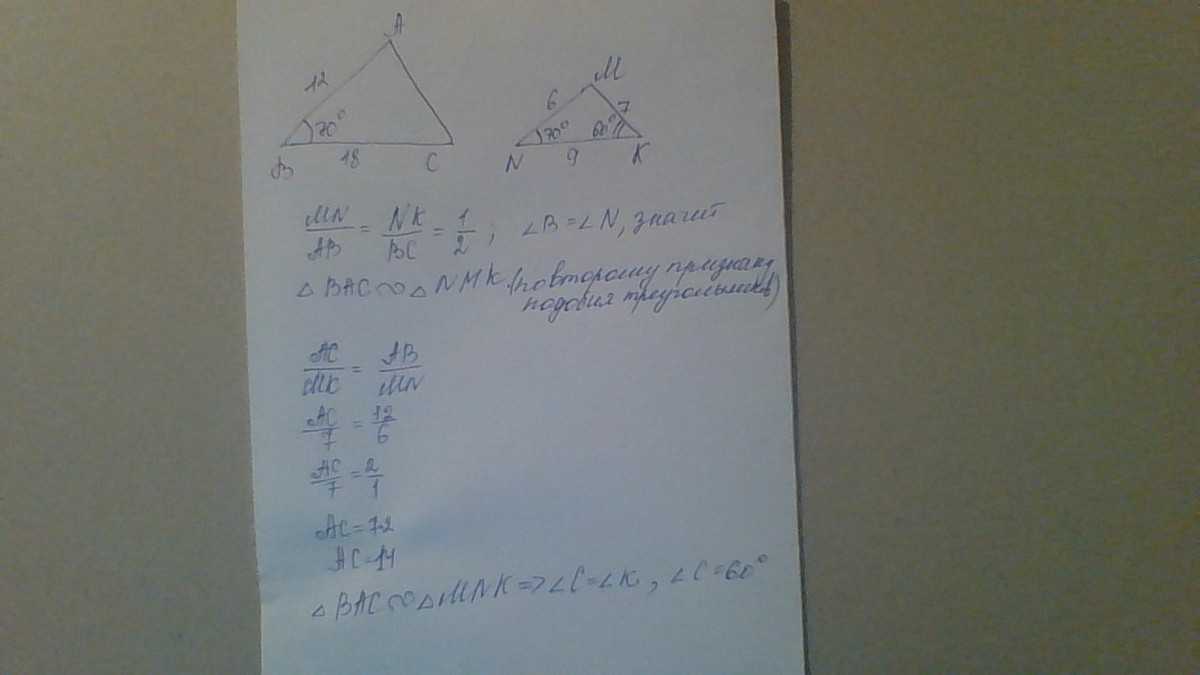 A
12
70°
B
18
C
M
6
7
70°
60°
N
9
K
MN/AB = NK/BC = 1/2 ; ∠B = ∠N, значит
△ BAC ∾ △ NMK (по второму признаку
подобия треугольников)
AC/MK = AB/MN
AC/7 = 12/6
AC/7 = 2/1
AC = 7·2
AC = 14
△ BAC ∾ △ MNK => ∠C = ∠K, ∠C = 60°